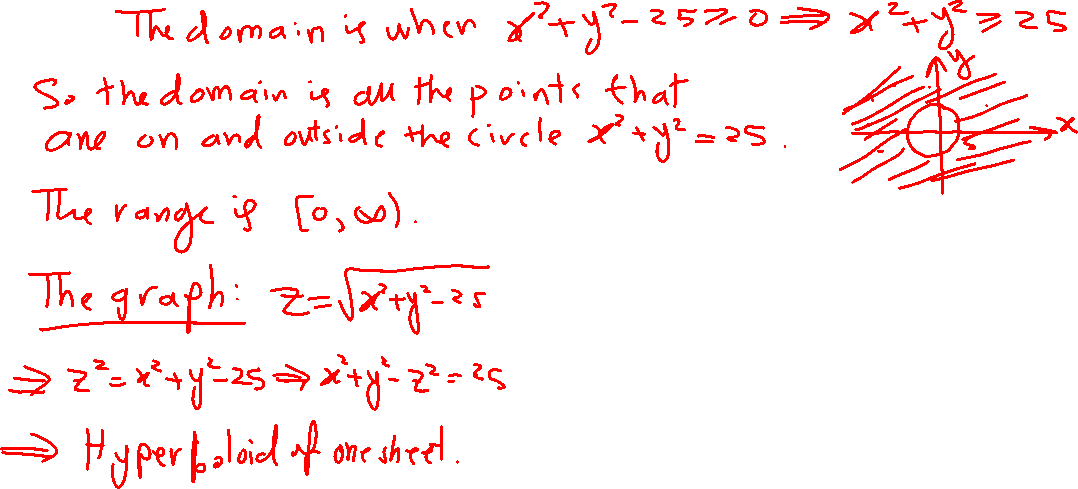 The domain is when x²+y²-25≥0 ⇒ x²+y²≥25
So the domain is all the points that
are on and outside the circle x²+y²=25.
y
x
5
The range is [0,∞).
The graph: z=√x²+y²-25
⇒ z²=x²+y²-25 ⇒ x²+y²-z²=25
⇒ Hyperboloid of one sheet.